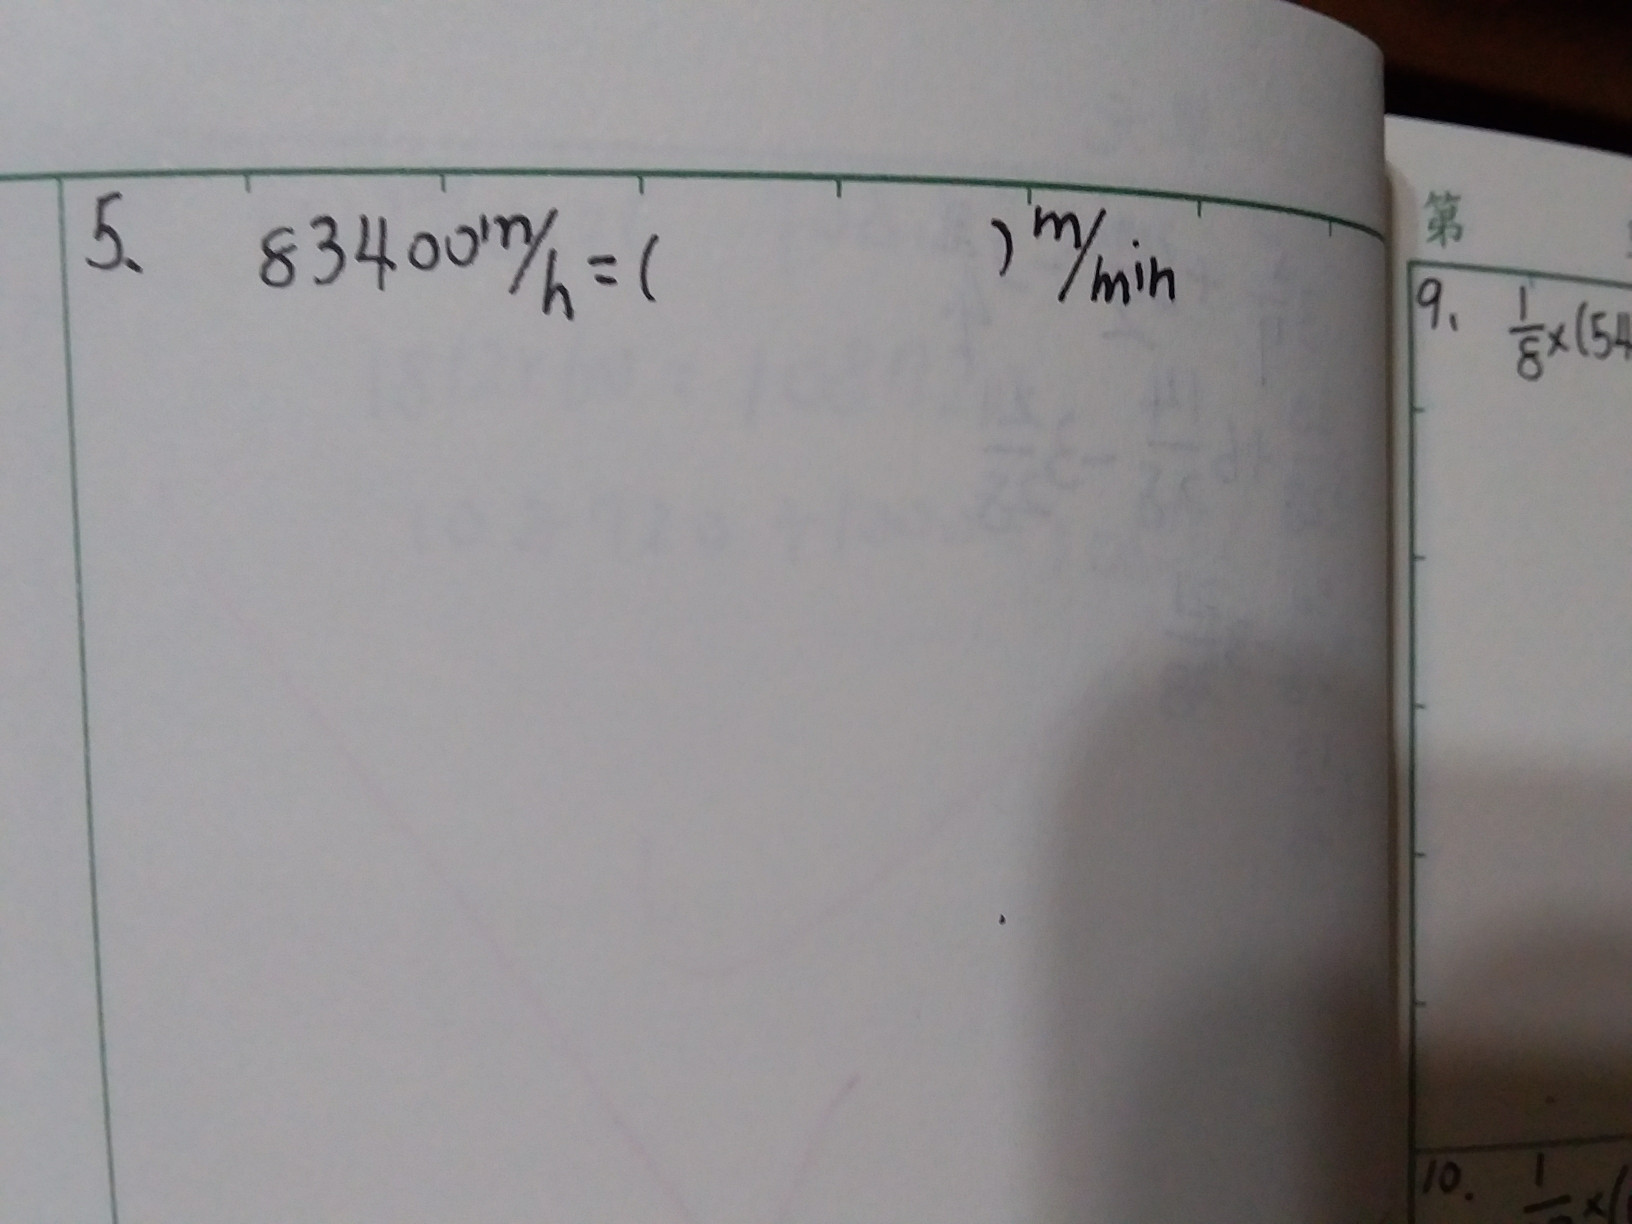 5. 83400 m/h = ( ) m/min
第
9. 1/8 × (54
10. 1